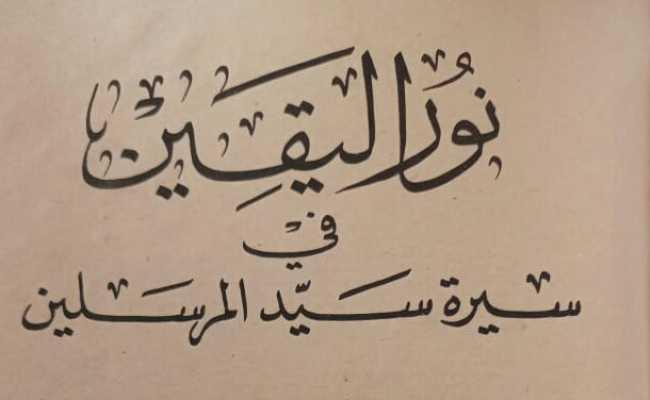 نُور اليَقِين
في
سيرة سيّد المرسلين